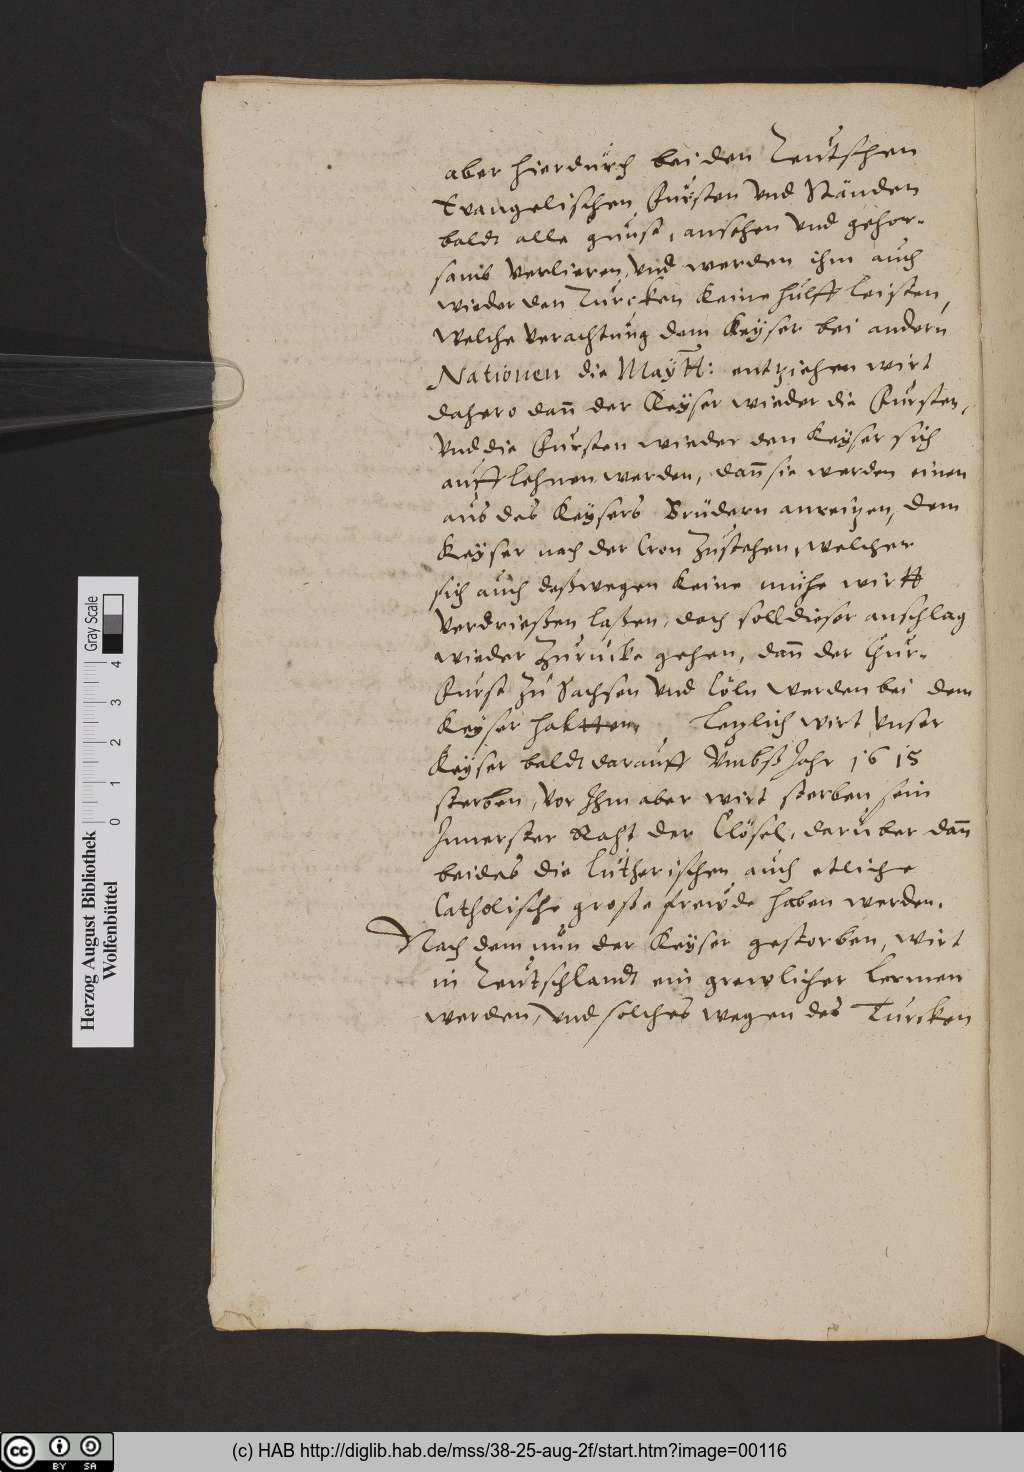 aber hierdurch bei den Teutschen
Evangelischen Fursten vnd Ständen
baldt alle gunst, ansehen vnd gehor-
samb verlieren, vnd werden ihm auch
wieder den Turcken keine hulff leisten,
welche verachtung dem Keÿser bei andern
Nationen die Maytt: entziehen wirt
dahero dann der Keÿser wieder die Fursten,
vnd die Fursten wieder den Keÿser sich
auff lehnen werden, dann sie werden einen
aus des Keÿsers Brüdern anreitzen, dem
Keÿser nach der Cron zustehen, welcher
sich auch deßwegen keine muhe wirtt
verdrießen laßen, doch soll dieser anschlag
wieder zurucke gehen, dann der Chur-
Furst zu Sachsen vnd Cöln werden bei dem
Keÿser haltten, Letzlich wirt vnser
Keÿser baldt darauff vmbß Jahr 1615
sterben, vor Ihm aber wirt sterben sein
Innerster Raht der Clösel, daruber dann
beides die Lutherischen auch etliche
Catholische große frewde haben werden.
Nach dem nun der Keÿser gestorben, wirt
in Teutschlandt ein grewlicher Lermen
werden, vnd solches wegen des Turcken
Herzog August Bibliothek
Wolfenbüttel
Gray Scale
0 1 2 3 4
cc BY SA
(c) HAB http://diglib.hab.de/mss/38-25-aug-2f/start.htm?image=00116